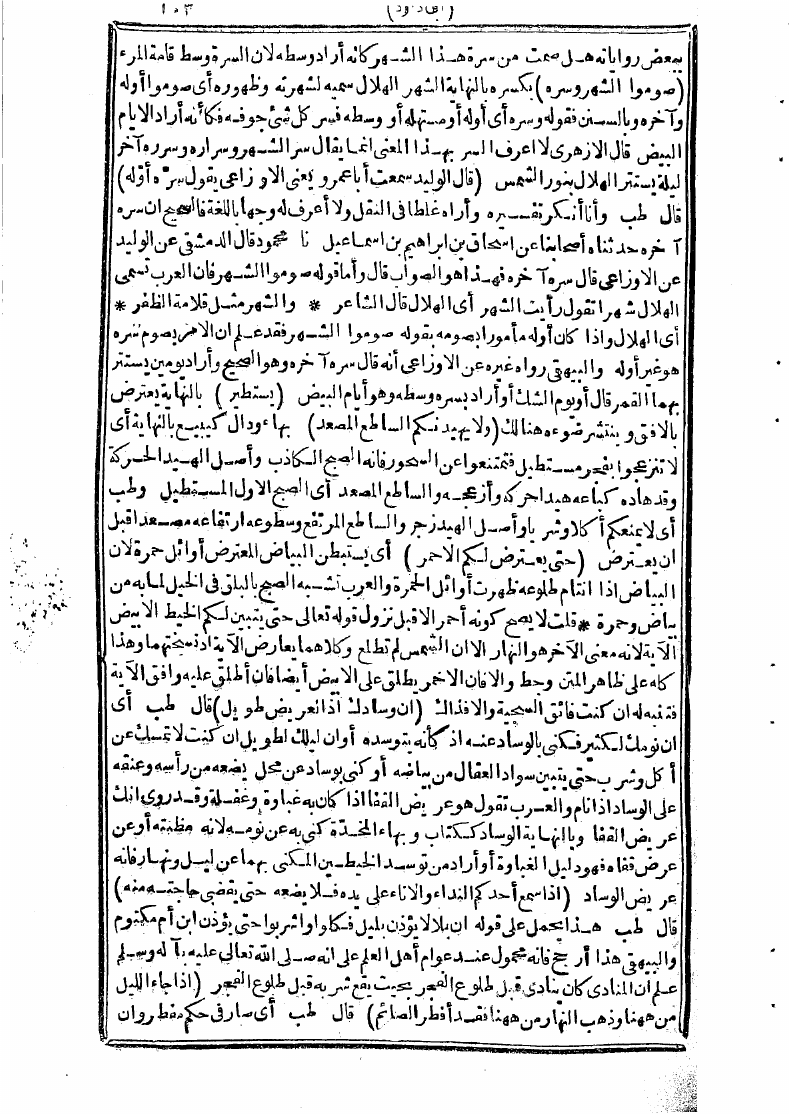 (ابى داود) ١٠٣
ببعض رواياته هل صمت من سرة هذا الشهر كانه أراد وسطه لان السرة وسط قامة المرء
(صوموا الشهر وسره) بكسره بالنهاية الشهر الهلال سمى به لشهرته وظهوره أى صوموا أوله
وآخره وبالسنن فقوله وسره أى أوله أو مستهله أو وسطه فسر كل شئ جوفه فكأنه أراد الايام
البيض قال الازهرى لا اعرف السر بهذا المعنى انما يقال سر الشهر وسراره وسرره آخر
ليلة يستتر الهلال بنور الشمس (قال الوليد سمعت أباعمرو يعنى الاوزاعى يقول سره أوله)
قال طب وأنا أنكر تفسيره وأراه غلطا فى النقل ولا أعرف له وجها باللغة فالصحيح ان سره
آخره حدثناه أصحابنا عن اسحاق بن ابراهيم بن اسماعيل نا محمود قال الدمشقى عن الوليد
عن الاوزاعى قال سره آخره فهذا هو الصواب قال وأما قوله صوموا الشهر فان العرب تسمى
الهلال شهرا تقول رأيت الشهر أى الهلال قال الشاعر * والشهر مثل قلامة الظفر *
أى الهلال واذا كان أوله مأمورا بصومه بقوله صوموا الشهر فقد علم ان الامر بصوم سره
هو غير أوله والبيهقى رواه غيره عن الاوزاعى أنه قال سره آخره وهو الصحيح وأراد يومين يستتر
بهما القمر قال أو يوم الشك أو أراد بسره وسطه وهو أيام البيض (يستطير) بالنهاية يعترض
بالافق وينتشر ضوءه هنالك (ولا يهيدنكم الساطع المصعد) بهاء ودال كيبيع بالنهاية أى
لا تنزعجوا بفجر مستطيل فتمتنعوا عن السحور فانه الصبح الكاذب وأصل الهيد الحركة
وقد هاده كباعه هيدا حركه وأزعجه والساطع المصعد أى الصبح الاول المستطيل وطب
أى لا يمنعكم أكلا وشربا وأصل الهيد زجر والساطع المرتفع وسطوعه ارتفاعه مصعدا قبل
ان يعترض (حتى يعترض لكم الاحمر) أى يستبطن البياض المعترض أوائل حمرة لان
البياض اذا انتام طلوعه ظهرت أوائل الحمرة والعرب تشبه الصبح بالبلق فى الخيل لما به من
بياض وحمرة * قلت لا يصح كونه أحمر الا قبل نزول قوله تعالى حتى يتبين لكم الخيط الابيض
الآية لانه معنى الآخر هو النهار الا ان الشمس لم تطلع وكلاهما يعارض الآية اذ نسختهما وهذا
كله على ظاهر المتن وحط والا فان الاحمر يطلق على الابيض أيضا فان أطلق عليه وافق الآية
فتنبه له ان كنت فائق السجية والا فذاك (ان وسادك اذا لعريض طويل) قال طب أى
ان نومك لكثير فكنى بالوساد عنه اذ كأنه يتوسده أو ان ليلك لطويل ان كنت لا تمسك عن
أكل وشرب حتى يتبين سواد العقال من بياضه أو كنى بوساد عن محل يضعه من رأسه وعنقه
على الوساد اذا نام والعرب تقول هو عريض القفا اذا كان به غباوة وغفلة وقد روى انك
عريض القفا وبالنهاية الوساد ككتاب وبهاء المخدة كنى به عن نومه لانه مظنته أو عن
عرض قفاه فهو دليل الغباوة أو أراد من توسد الخيطين المكنى بهما عن ليل ونهار فانه
عريض الوساد (اذا سمع أحدكم النداء والاناء على يده فلا يضعه حتى يقضى حاجته منه)
قال طب هذا يحمل على قوله ان بلالا يؤذن بليل فكلوا واشربوا حتى يؤذن ابن أم مكتوم
والبيهقى هذا أرجح فانه محمول عند عوام أهل العلم على انه صلى الله تعالى عليه بآله وسلم
علم ان المنادى كان ينادى قبل طلوع الفجر بحيث يقع شربه قبل طلوع الفجر (اذا جاء الليل
من ههنا وذهب النهار من ههنا فقد أفطر الصائم) قال طب أى صار فى حكم مفطر وان